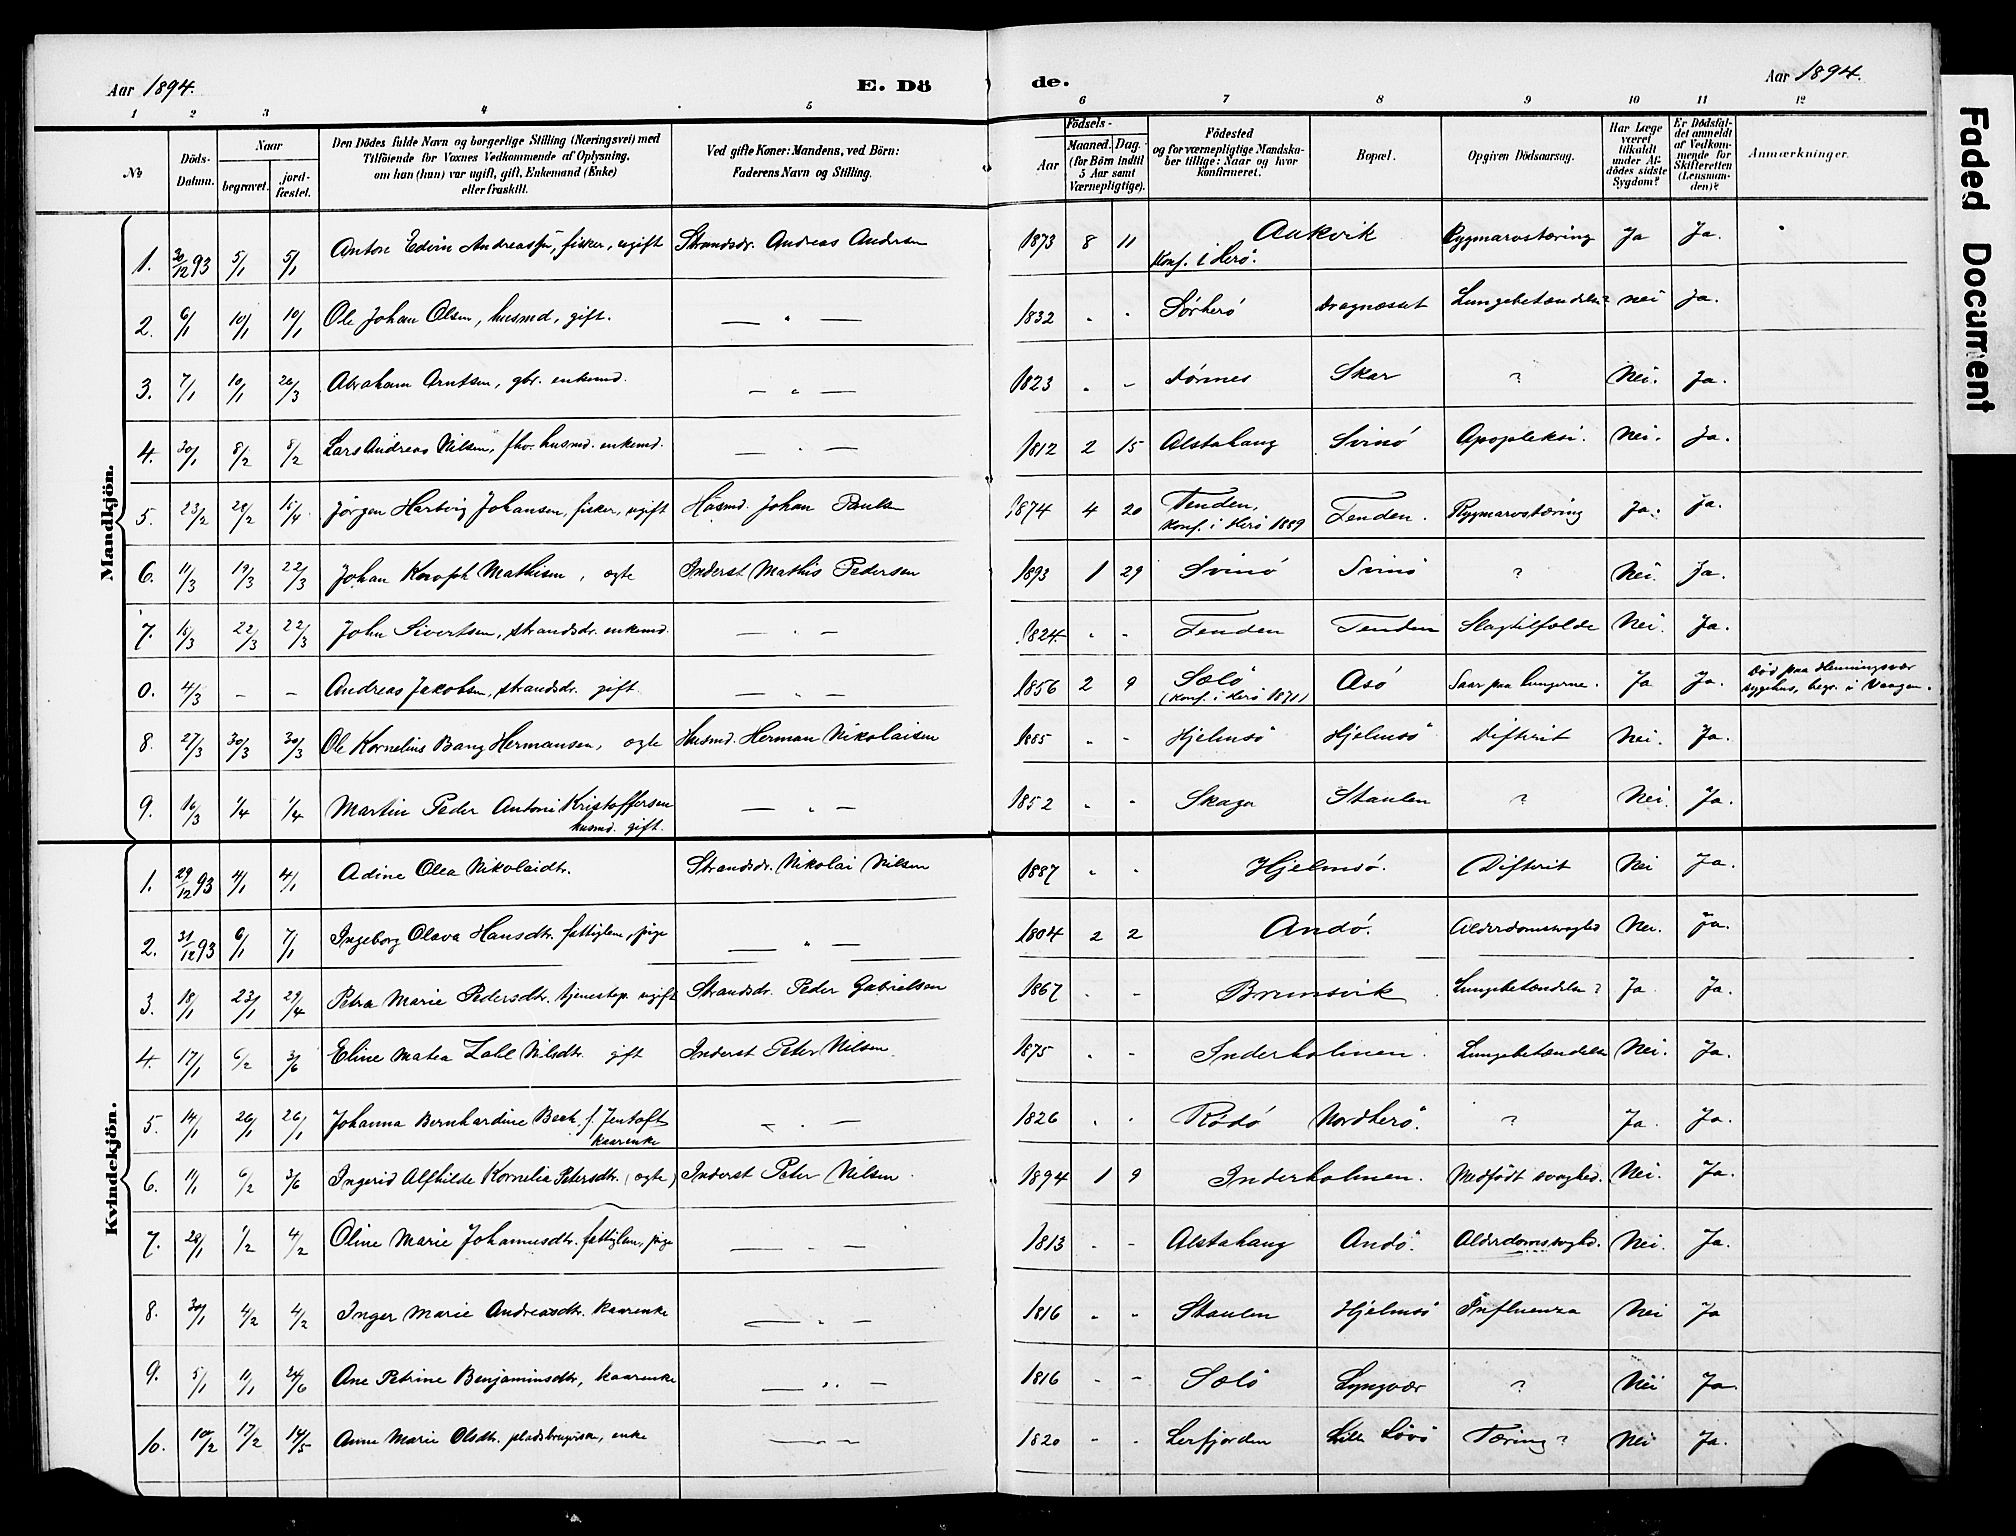 Aar 1894. E. Dö de. Aar 1894.
1 2 3 4 5 6 7 8 9 10 11 12
No
Döds-Datum.
Naar
begravet.
jord-fæstet.
Den Dödes fulde Navn og borgerlige Stilling (Næringsvei) med
Tilföiende for Voxnes Vedkommende af Oplysning,
om han (hun) var ugift, gift, Enkemand (Enke)
eller fraskilt.
Ved gifte Koner: Mandens, ved Börn:
Faderens Navn og Stilling.
Födsels-
Aar
Maaned. Dag.
(for Börn indtil
5 Aar samt
Værnepligtige).
Födested
og for værnepligtige Mandska-
ber tillige: Naar og hvor
konfirmeret.
Bopæl.
Opgiven Dödsaarsag.
Har Læge
været
tilkaldt
under Af-
dödes sidste
Sygdom?
Er Dödsfal-
det anmeldt
af Vedkom-
mende for
Skifteretten
(Lensman-
den)?
Anmærkninger.
Mandkjön.
1. 30/12 93 5/1 5/1 Anton Edvin Andreass., fisker, ugift Strandsdr. Andreas Andersen 1873 8 11 Aakvik Rygmarvstæring Ja Ja.
Konf. i Herö.
2. 6/1 10/1 10/1 Ole Johan Olsen, husmd, gift. — " — 1832 " " Sörherö Dragnæsset Lungebetændelse? nei Ja.
3. 7/1 10/1 26/3 Abraham Arntsen, gbr. enkemd. — " — 1823 " " Dönnes Skar ? Nei. Ja.
4. 30/1 8/2 8/2 Lars Andreas Nilsen, fhv. husmd. enkemd. — " — 1812 2 15 Alstahaug Svinö Apopleksi. Nei. Ja.
5. 23/2 28/2 15/4 Jörgen Hartvig Johansen, fisker, ugift Husmd. Johan Pauls 1874 4 20 Tenden, Tenden. Rygmarvstæring Ja. Ja.
konf. i Herö 1889
6. 11/3 19/3 22/3 Johan Mathisen, ægte Inderst Mathis Pedersen 1893 1 29 Svinö Svinö ? Nei. Ja.
7. 16/3 22/3 22/3 John Sivertsen, strandsdr. enkemd. — " — 1824 " " Tenden Tenden Slagtilfælde Nei. Ja.
0. 4/3 – – Andreas Jakobsen, strandsdr. gift. — " — 1856 2 9 Sælö Asö Saar paa lungerne. Ja Ja. Död paa Henningsvær
(konf. i Herö 1871) sygehus, begr. i Vaagan.
8. 27/3 30/3 30/3 Ole Kornelius Bang Hermansen, ægte Husmd. Herman Nikolaisen 1885 " " Hjelmsö Hjelmsö Difterit Nei. Ja.
9. 16/3 1/4 1/4 Martin Peder Antoni Kristoffersen — " — 1852 " " Skaga Staulen ? Nei. Ja.
husmd. gift.
Kvindekjön.
1. 29/12 93 4/1 4/1 Adine Olea Nikolaidtr. Strandsdr. Nikolai Nilsen 1887 " " Hjelmsö. Difterit Nei Ja.
2. 31/12 93 6/1 7/1 Ingeborg Olava Hansdtr. fattiglem, pige — " — 1804 2 2 Andö. Alderdomssvaghed Nei. Ja.
3. 18/1 23/1 29/4 Petra Marie Pedersdtr. tjenestep. ugift Strandsdr. Peder Gabrielsen 1867 - - Brunsvik Lungebetændelse? Ja. Ja.
4. 17/1 6/2 3/6 Eline Matea Zahl Nilsdtr. gift Inderst Peter Nilsen. 1875 " " Inderholmen. Lungebetændelse Nei. Ja.
5. 14/1 26/1 26/1 Johanna Bernhardine Beck, f. Jentoft — " — 1826 " " Rödö Nordherö. ? Ja. Ja.
kaarenke
6. 11/1 6/2 3/6 Ingerid Alfhilde Kornelia Petersdtr. (ægte) Inderst Peter Nilsen. 1894 1 9 Inderholmen. Medfödt svaghed. Nei. Ja.
7. 28/1 1/2 4/2 Oline Marie Johannesdtr. fattiglem, pige — " — 1813 " " Alstahaug Andö. Alderdomssvaghd. Nei. Ja.
8. 30/1 4/2 4/2 Inger Marie Andreasdtr. kaarenke — " — 1816 " " Staulen Hjelmsö Influenza Nei Ja
9. 5/1 11/1 24/6 Ane Petrine Benjaminsdtr, kaarenke — " — 1816 - - Sælö Lyngvær ? Nei Ja.
10. 10/2 17/2 14/5 Anne Marie Olsdtr. pladsbrugerske, enke — " — 1820 - - Leirfjorden Lille Lövö Tæring? Nei Ja.
Faded Document